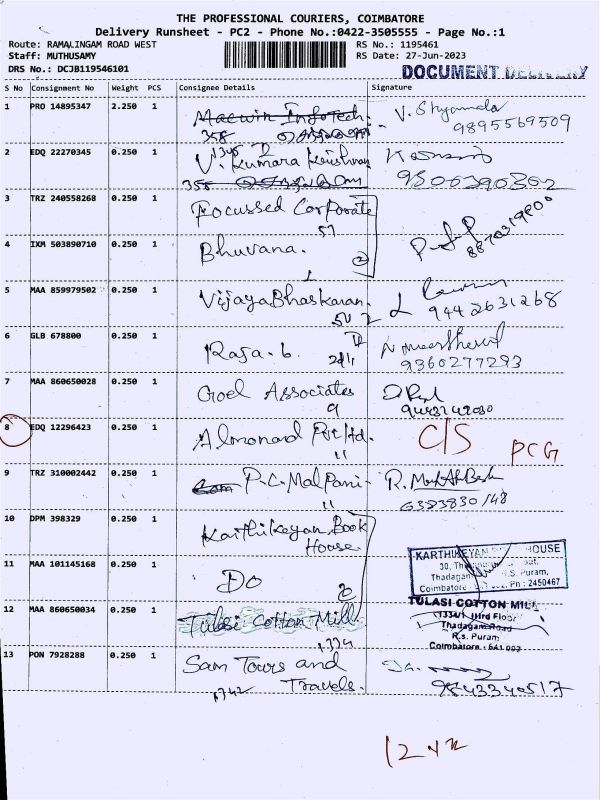 THE PROFESSIONAL COURIERS, COIMBATORE
Delivery Runsheet - PC2 - Phone No.:0422-3505555 - Page No.:1
Route: RAMALINGAM ROAD WEST RS No.: 1195461
Staff: MUTHUSAMY RS Date: 27-Jun-2023
DRS No.: DCJB119546101 DOCUMENT DELIVERY
S No Consignment No Weight PCS Consignee Details Signature
1 PRO 14895347 2.250 1 Macwin Infotech. V. Shyamala
358 9895569509
2 EDQ 22270345 0.250 1 V. Kumara Krishnan
358
3 TRZ 240558268 0.250 1 Focussed Corporate
57
4 IXM 503890710 0.250 1 Bhuvana. 2
5 MAA 859979502 0.250 1 VijayaBhaskaran.
9442631268
6 GLB 678800 0.250 1 Raja. b.
9360277293
7 MAA 860650028 0.250 1 Goel Associates
9
8 EDQ 12296423 0.250 1 Almonard Pvt Ltd. C/S PCG
"
9 TRZ 310002442 0.250 1 P.C. Malpani
" 6383830148
10 DPM 398329 0.250 1 Karthikeyan Book
House
11 MAA 101145168 0.250 1 Do 2
KARTHIKEYAN HOUSE
30,
Thadagam R.S. Puram,
Coimbatore Ph : 2450467
12 MAA 860650034 0.250 1 Tulasi Cotton Mill
1334
TULASI COTTON MILL
1334/1 IIIrd Floor
Thadagam Road
R.s. Puram
Coimbatore - 641 002
13 PON 7928288 0.250 1 Sam Tours and
Travels.
1342 9843340517